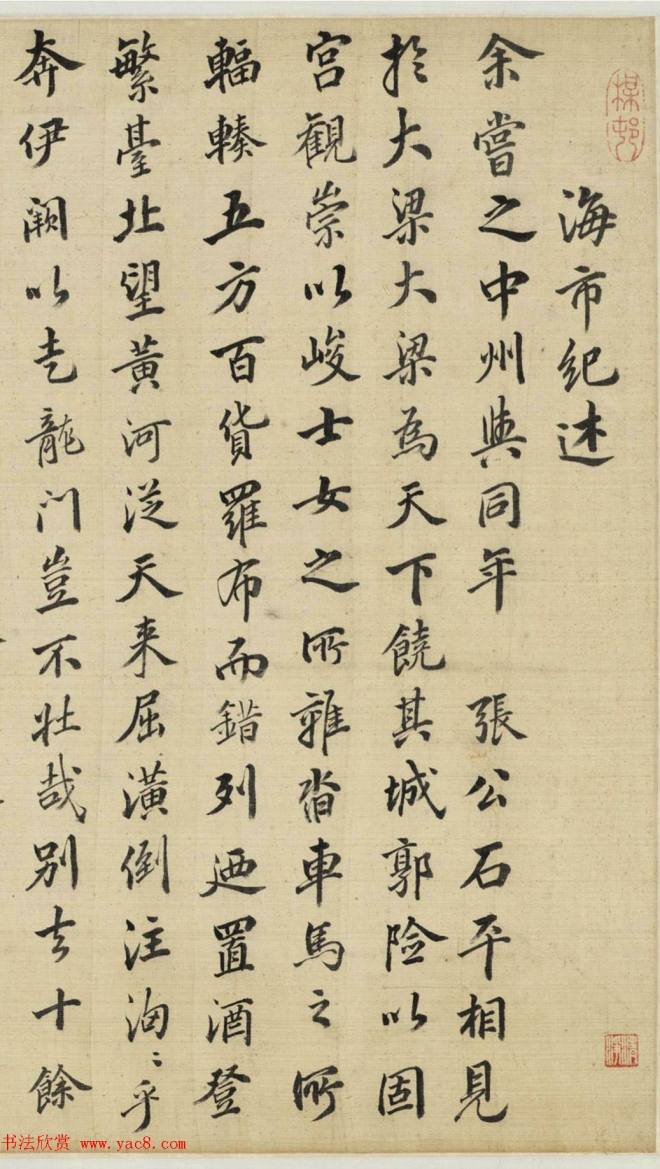 海市紀述
余嘗之中州與同年 張公石平相見
於大梁大梁為天下饒其城郭險以固
宮觀崇以峻士女之所雜沓車馬之所
輻輳五方百貨羅布而錯列迺置酒登
繁臺北望黃河從天來屈潢倒注洶〻乎
奔伊闕以走龍門豈不壯哉別去十餘
书法欣赏 www.yac8.com